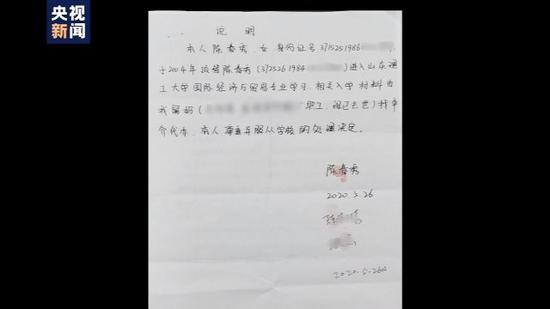 央视
新闻
说 明
本人陈春秀，女，身份证号 371525 1986
于2004年顶替陈春秀（372526 1984 ）进入山东理
工大学国际经济与贸易专业学习，相关入学材料由
我 （ 职工，现已去世）找中
介代办，本人尊重并服从学校的处理决定。
陈春秀
2020.5.26
2020.5.26